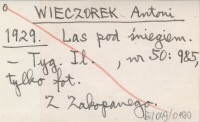 a
WIECZOREK Antoni
1929. Las pod śniegiem.
– Tyg. Il. , nr 50: 985,
tylko fot.
Z Zakopanego.